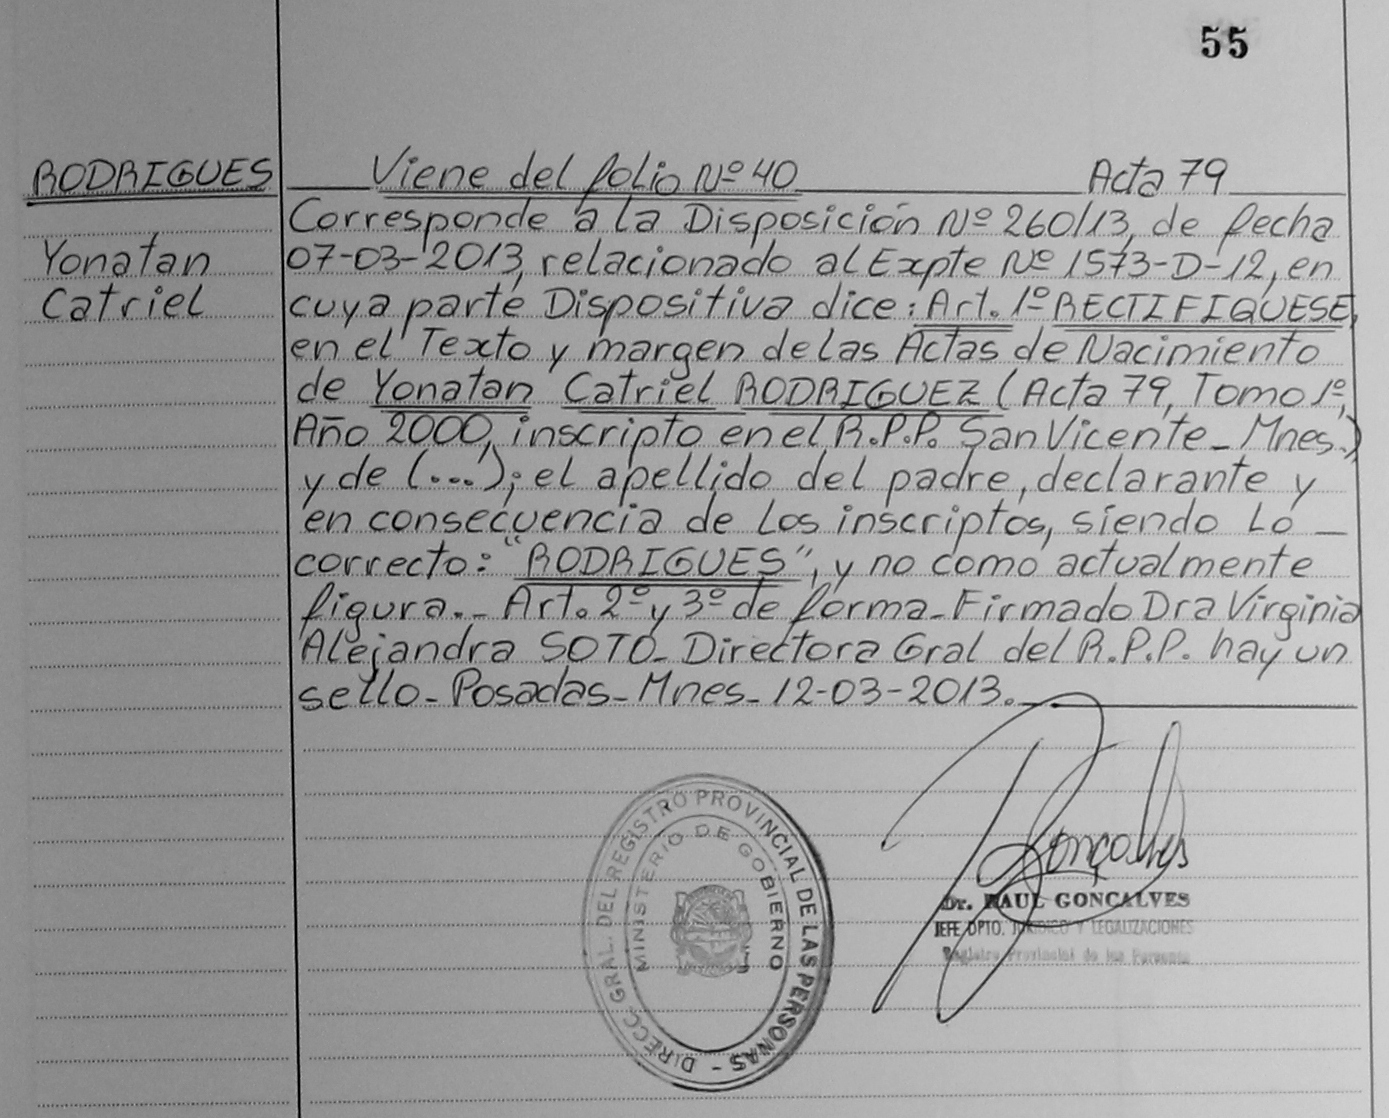 55
RODRIGUES
Yonatan
Catriel
Viene del folio Nº 40 Acta 79
Corresponde a la Disposición Nº 260/13, de fecha
07-03-2013, relacionado al Expte Nº 1573-D-12, en
cuya parte Dispositiva dice: Art. 1º RECTIFIQUESE,
en el Texto y margen de las Actas de Nacimiento
de Yonatan Catriel RODRIGUEZ (Acta 79, Tomo 1º,
Año 2000, inscripto en el R.P.P. San Vicente - Mnes.)
y de (...); el apellido del padre, declarante y
en consecuencia de los inscriptos, siendo lo
correcto: "RODRIGUES", y no como actualmente
figura.- Art. 2º y 3º de forma - Firmado Dra Virginia
Alejandra SOTO - Directora Gral del R.P.P. hay un
sello - Posadas - Mnes - 12-03-2013.
DIRECC. GRAL. DEL REGISTRO PROVINCIAL DE LAS PERSONAS -
MINISTERIO DE GOBIERNO
Gonçalves
Dr. RAUL GONCALVES
JEFE DPTO. JURIDICO Y LEGALIZACIONES
Registro Provincial de las Personas